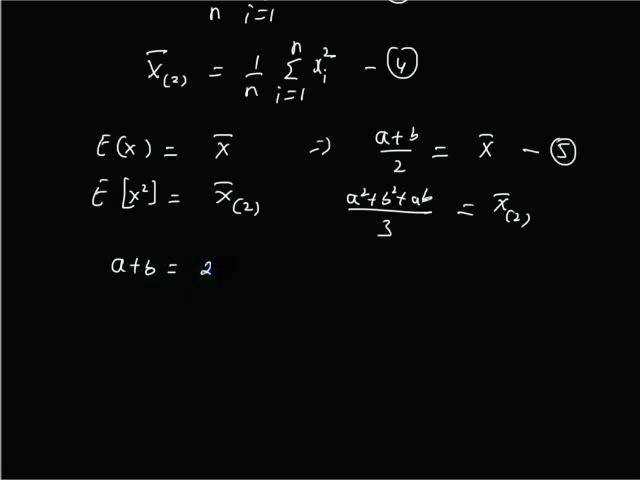 n i=1
X̄₍₂₎ = 1/n Σⁿᵢ₌₁ xᵢ² - ④
E(x) = X̄ ⇒ (a+b)/2 = X̄ - ⑤
E[x²] = X̄₍₂₎ (a²+b²+ab)/3 = X̄₍₂₎
a+b = 2